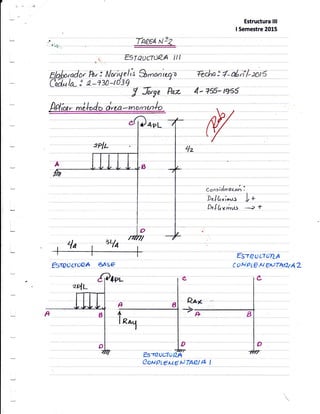 Estructura III
I Semestre 2015
TAREA Nº2
ESTRUCTURA III
Elaborador Por: Noriyelis Samaniego
Fecha: 7-abril-2015
Cedula: 2-730-1039
y Jorge Paz 4-755-1955
Aplicar método área-momento
C 4PL
2P/L
L/2
A B
Consideración:
Deflexionus ↓ +
Deflexionus → +
D
L/4 3L/4
ESTRUCTURA BASE
ESTRUCTURA
COMPLEMENTARIA 2
2P/L 4PL C C
A B A B RAx A B
RAy
D D D
ESTRUCTURA
COMPLEMENTARIA 1